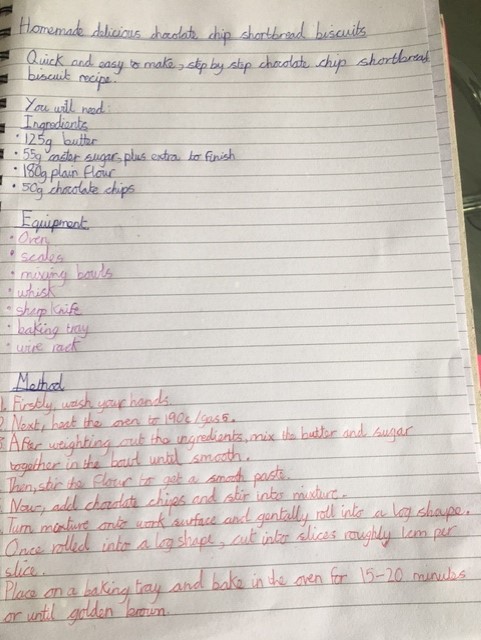 Homemade delicious chocolate chip shortbread biscuits
Quick and easy to make, step by step chocolate chip shortbread
biscuit recipe.
You will need:
Ingredients
• 125g butter
• 55g caster sugar, plus extra to finish
• 180g plain flour
• 50g chocolate chips
Equipment
• Oven
• scales
• mixing bowls
• whisk
• sharp knife
• baking tray
• wire rack
Method
1. Firstly, wash your hands.
2. Next, heat the oven to 190c/gas5.
3. After weighting out the ingredients, mix the butter and sugar
together in the bowl until smooth.
Then, stir the flour to get a smooth paste.
Now, add chocolate chips and stir into mixture.
Turn mixture onto work surface and gentally roll into a log shape.
Once rolled into a log shape, cut into slices roughly 1cm per
slice.
Place on a baking tray and bake in the oven for 15-20 minutes
or until golden brown.